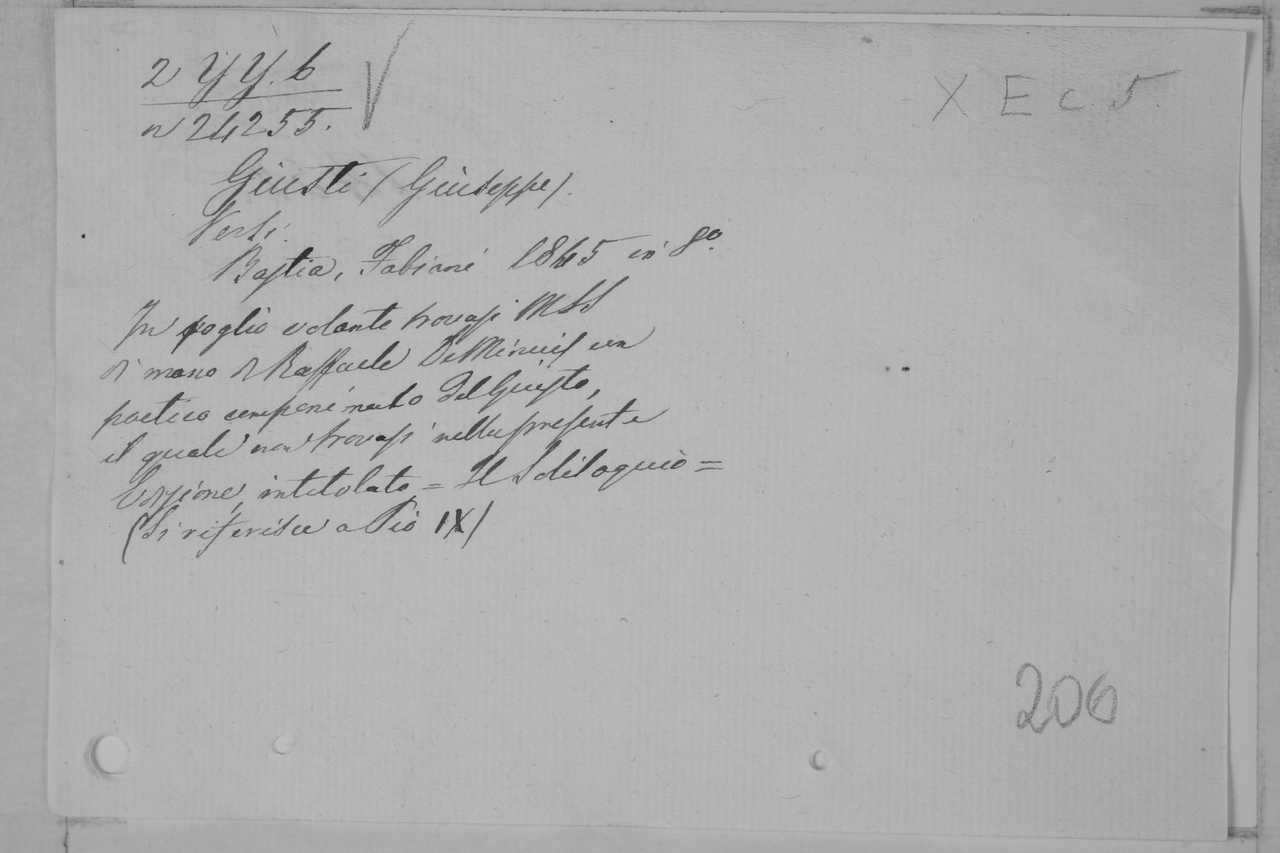 2 YY. 6
X E c. 5.
n 24255.
Giusti (Giuseppe).
Versi.
Bastia, Fabiani 1845 in 8º.
In foglio volante trovasi MSS
di mano di Raffaele De Minicis un
poetico componimento del Giusto,
il quale non trovasi nella presente
intitolato = Il Sdiloquio =
(Si riferisce a Pio IX)
206